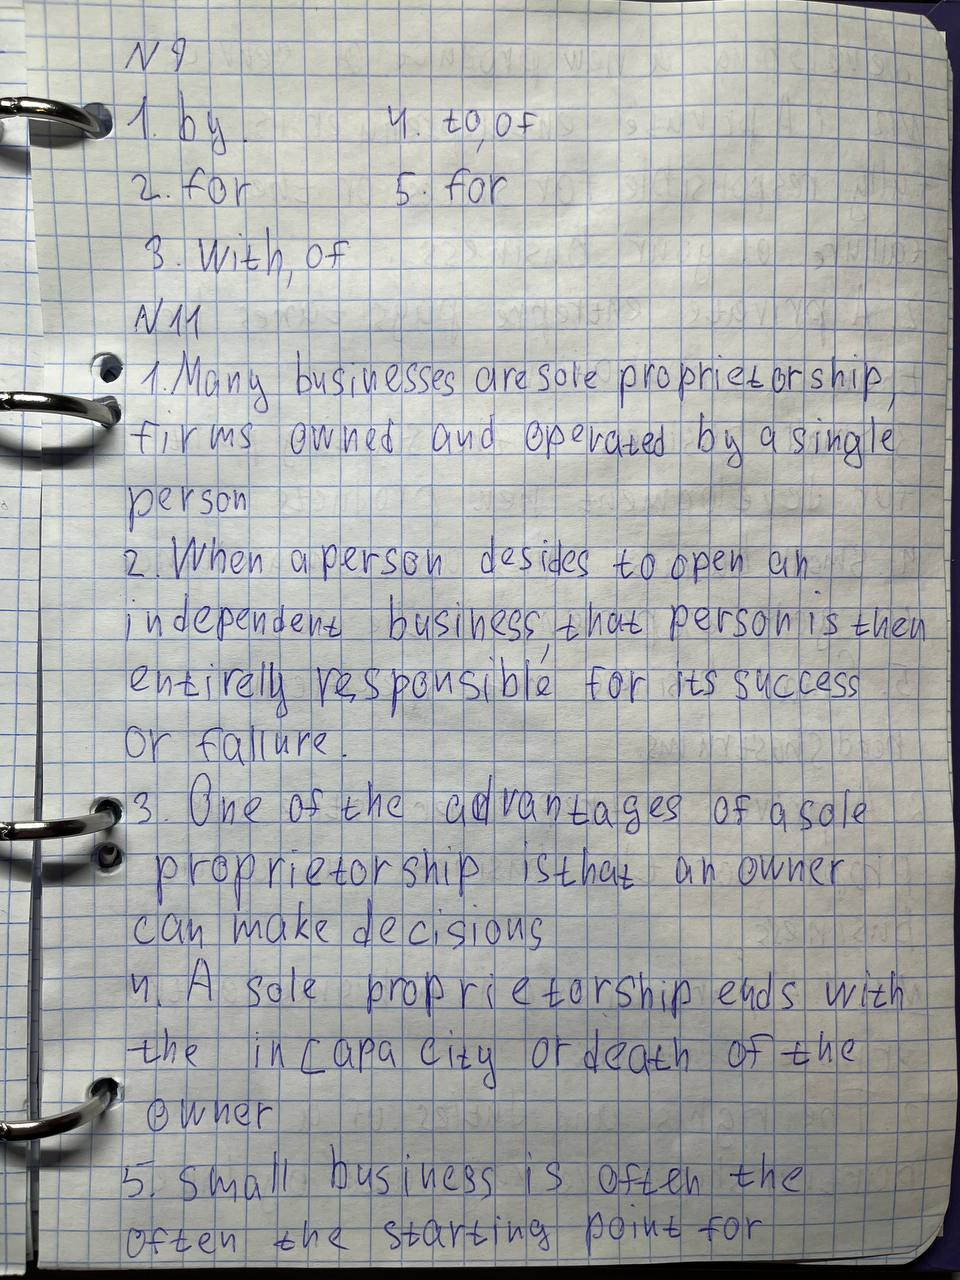 N 9
1. by. 4. to, of
2. for 5. for
3. With, of
N11
1. Many businesses are sole proprietorship,
firms owned and operated by a single
person
2. When a person desides to open an
independent business, that person is then
entirely responsible for its success
or failure.
3. One of the advantages of a sole
proprietorship is that an owner
can make decisions
4. A sole proprietorship ends with
the incapacity or death of the
owner
5. Small business is often the
often the starting point for